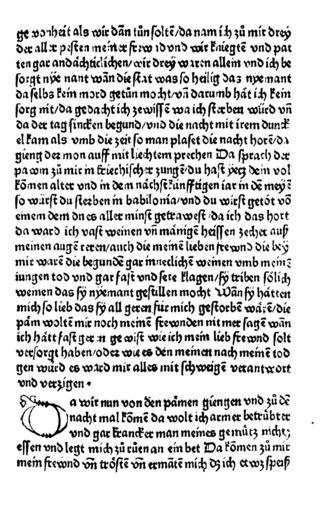 ge wonheit als wir dan̄ tůn solten/da nam ich zů mir drey
der aller pesten meiner frewnd vnd wir kniegten vnd pat
ten gar andächticlichen/wir drey waren allein vnd ich be
sorgt nyemant wan̄ die stat was so heilig das nyemant
da selbs kein mord getůn mocht/vn̄ darumb hät ich kein
sorg nit/da gedacht ich zewisse wa ich sterben würd vn̄
da der tag sincken begund/vnd die nacht mit irem dunck
el kam als vmb die zeit so man plaset die nacht horen/da
gieng der mon auff mit liechtem prechen Da sprach der
pawm zů mir in kriechischer zungē/du hast yecz dein vol
kōmen alter vnd in dem nächstkünfftigen iar in dem meyē
so wirst du sterben in babilonia/vnd du wirst getöt vō
einem dem du es aller minst getrawest/da ich das hort
da ward ich vast weinen vn̄ mänige heissen zeher auß
meinen augen reren/auch die meinē lieben frewnd die bey
mir warē die begundē gar inneclichē weinen vmb meinē
iungen tod vnd gar fast vnd sere klagen/sy triben sölich
weinen das sy nyemant gestillen mocht Wan̄ sy hätten
mich so lieb das sy all geren für mich gestorbē wärē/die
päm wolten mir noch meinen frewnden nit mer sagē wan̄
ich hätt fast geren gewißt wie ich mein lieb frewnd solt
versorgt haben/oder wie es den meinen nach meinē tod
gen würd es ward mir alles mit schweigē verantwort
vnd verzigen •
Da wir nun von den pämen giengen vnd zů dē
nacht mal kōmē da wolt ich armer betrübter
vnd gar krancker man meines gemütz nichtz
essen vnd legt mich zů růen an ein bet Da kōmen zů mir
mein frewnd vn̄ trösten vn̄ ermatē mich dz ich etwz speiß